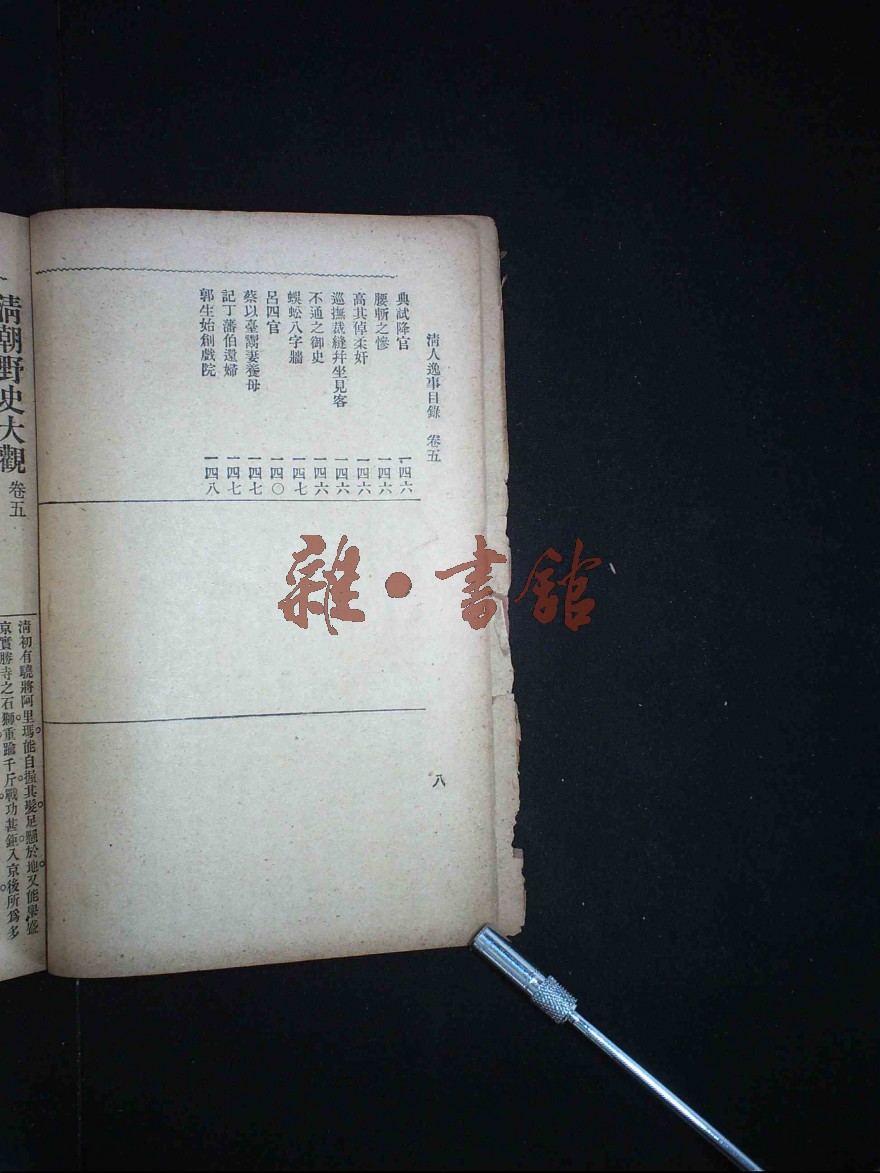 清人逸事目錄 卷五
典試降官 一四六
腰斬之慘 一四六
高其倬柔奸 一四六
巡撫裁縫幷坐見客 一四六
不通之御史 一四六
蜈蚣八字牆 一四七
呂四官 一四〇
蔡以臺鬻妻養母 一四七
記丁藩伯還婦 一四七
郭生始創戲院 一四八
八
清朝野史大觀 卷五
清初有驍將阿里瑪能自握其髮足懸於地又能舉盛
京實勝寺之石獅重踰千斤戰功甚鉅入京後所爲多
雜·書館